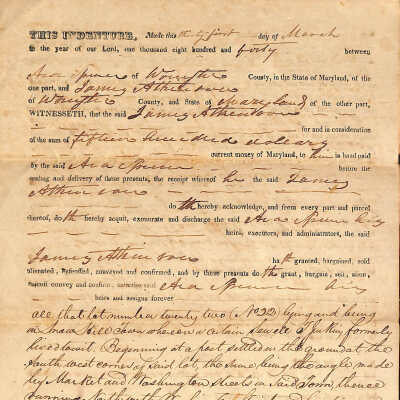 THIS INDENTURE, Made this thirty first day of March
in the year of our Lord, one thousand eight hundred and forty between
Asa Spence of Worcester County, in the State of Maryland, of the
one part, and James Atkinson
of Worcester County, and State of Maryland of the other part,
WITNESSETH, that the said James Atkinson
for and in consideration
of the sum of fifteen hundred dollars
current money of Maryland, to him in hand paid
by the said Asa Spence before the
sealing and delivery of these presents, the receipt whereof he the said James
Atkinson
doth hereby acknowledge, and from every part and parcel
thereof, doth hereby acquit, exonerate and discharge the said Asa Spence his
heirs, executors and administrators, the said
James Atkinson
hath granted, bargained, sold
aliened, enfeoffed, conveyed and confirmed, and by these presents to the grant, bargain, sell, alien,
enfeoff convey and confirm, unto the said Asa Spence his
heirs and assigns forever
all that lot number twenty two (No 22) lying and being
in Snow Hill Town whereon a certain Jewell formerly
lived Beginning at a post settled in the ground at the
South west corner of said lot, the same being the angle made
by Market and Washington Streets in said Town, thence
running